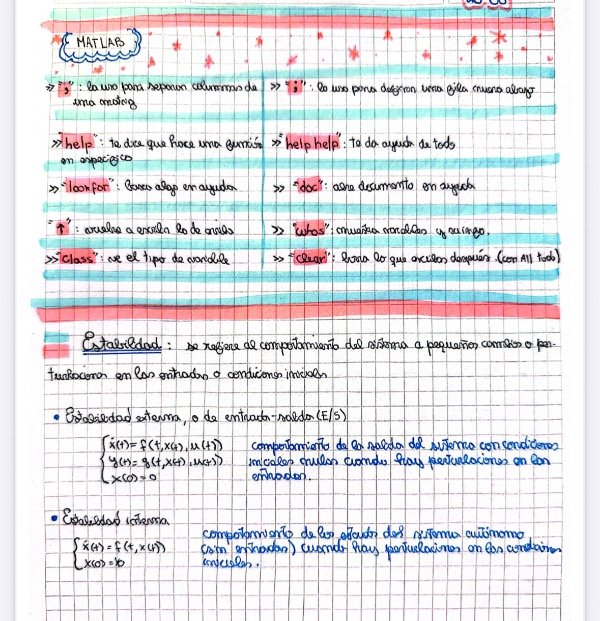 MATLAB
>> ",": lo uso para separar columnas de
una matriz
>> ";": lo uso para designar una fila nueva abajo
>> "help": te dice que hace una función
en específico
>> "help help": te da ayuda de todo
>> "lookfor": busca algo en ayuda
>> "doc": abre documento en ayuda
>> "↑": vuelve a escribir lo de arriba
>> "whos": muestra variables y su info.
>> "class": ve el tipo de variable
>> "clear": borra lo que escribas después. (con All todo)
Estabilidad: se refiere al comportamiento del sistema a pequeños cambios o per-
turbaciones en las entradas o condiciones iniciales
• Estabilidad externa, o de entrada-salida (E/S)
ẋ(t) = f(t, x(t), u(t))
y(t) = g(t, x(t), u(t))
x(0) = 0
comportamiento de la salida del sistema con condiciones
iniciales nulas cuando hay perturbaciones en las
entradas.
• Estabilidad interna
ẋ(t) = f(t, x(t))
x(0) = x0
comportamiento de los estados del sistema autónomo
(sin entradas) cuando hay perturbaciones en las condiciones
iniciales.